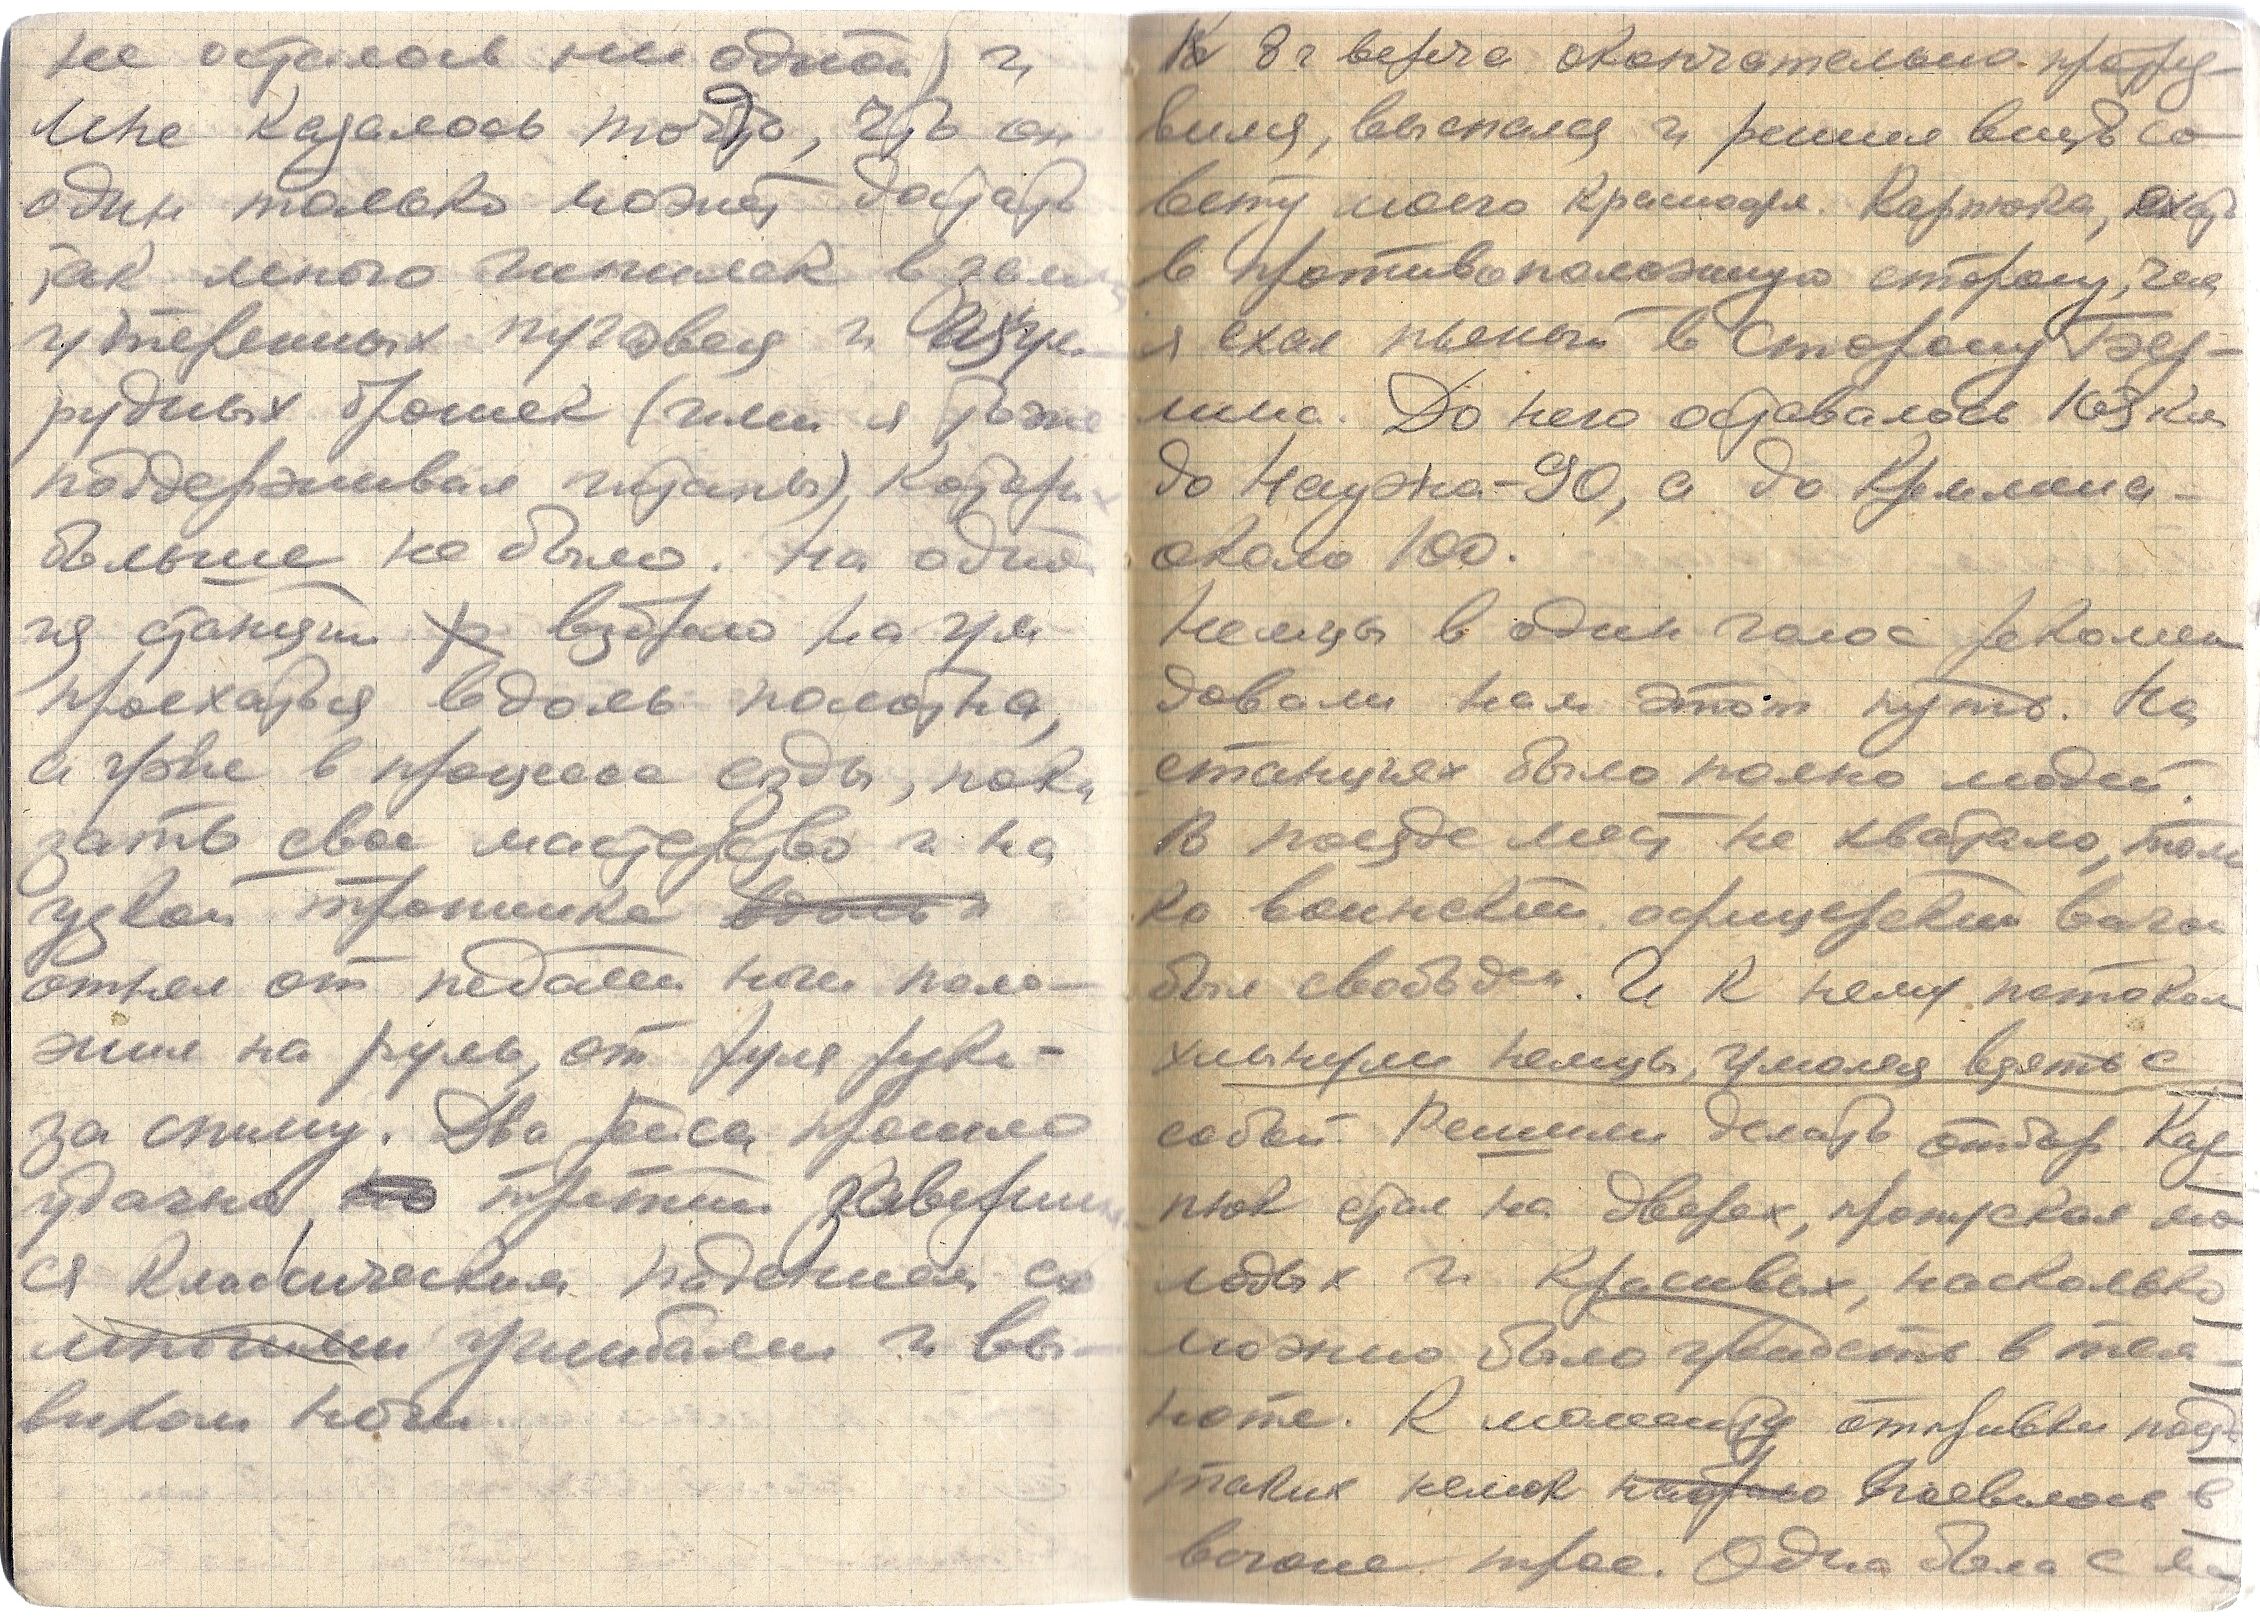 не осталось ни одной) и
мне казалось тогда, что он
один только может достать
так много шпилек взамен
утерянных пуговец и изум-
рудных брошек (ими я тоже
поддерживал штаны), которых
больше не было. На одной
из станций взбрело на ум
проехаться вдоль полотна,
а уже в процессе езды, пока
зать свое мастерство и на
узкой тропинке вдоль
отнял от педалей ноги поло-
жил на руль, от руля руки -
за спину. Два рейса прошло
удачно, но третий завершил
ся классическим падением со
многими ушибами и вы-
вихом ноги.
К 8 ч вечера окончательно протрез-
вился, выспался и решил внять со-
вету моего красноарм. Карпюка, ехать
в противоположную сторону, чем
я ехал пьяный в сторону Бер-
лина. До него оставалось 103 км
до Науэна - 90, а до Креммена -
около 100.
Немцы в один голос рекомен
довали нам этот путь. На
станциях было полно людей.
В поезде мест не хватало, толь
ко воинский офицерский вагон
был свободен. И к нему потоком
хлынули немцы, умоляя взять с
собой. Решили делать отбор. Кар
пюк стал на дверях, пропуская мо
лодых и красивых, насколько
можно было увидеть в тем-
ноте. К моменту отправки поезда
таких немок набрало появилось в
вагоне трое. Одна была с ма